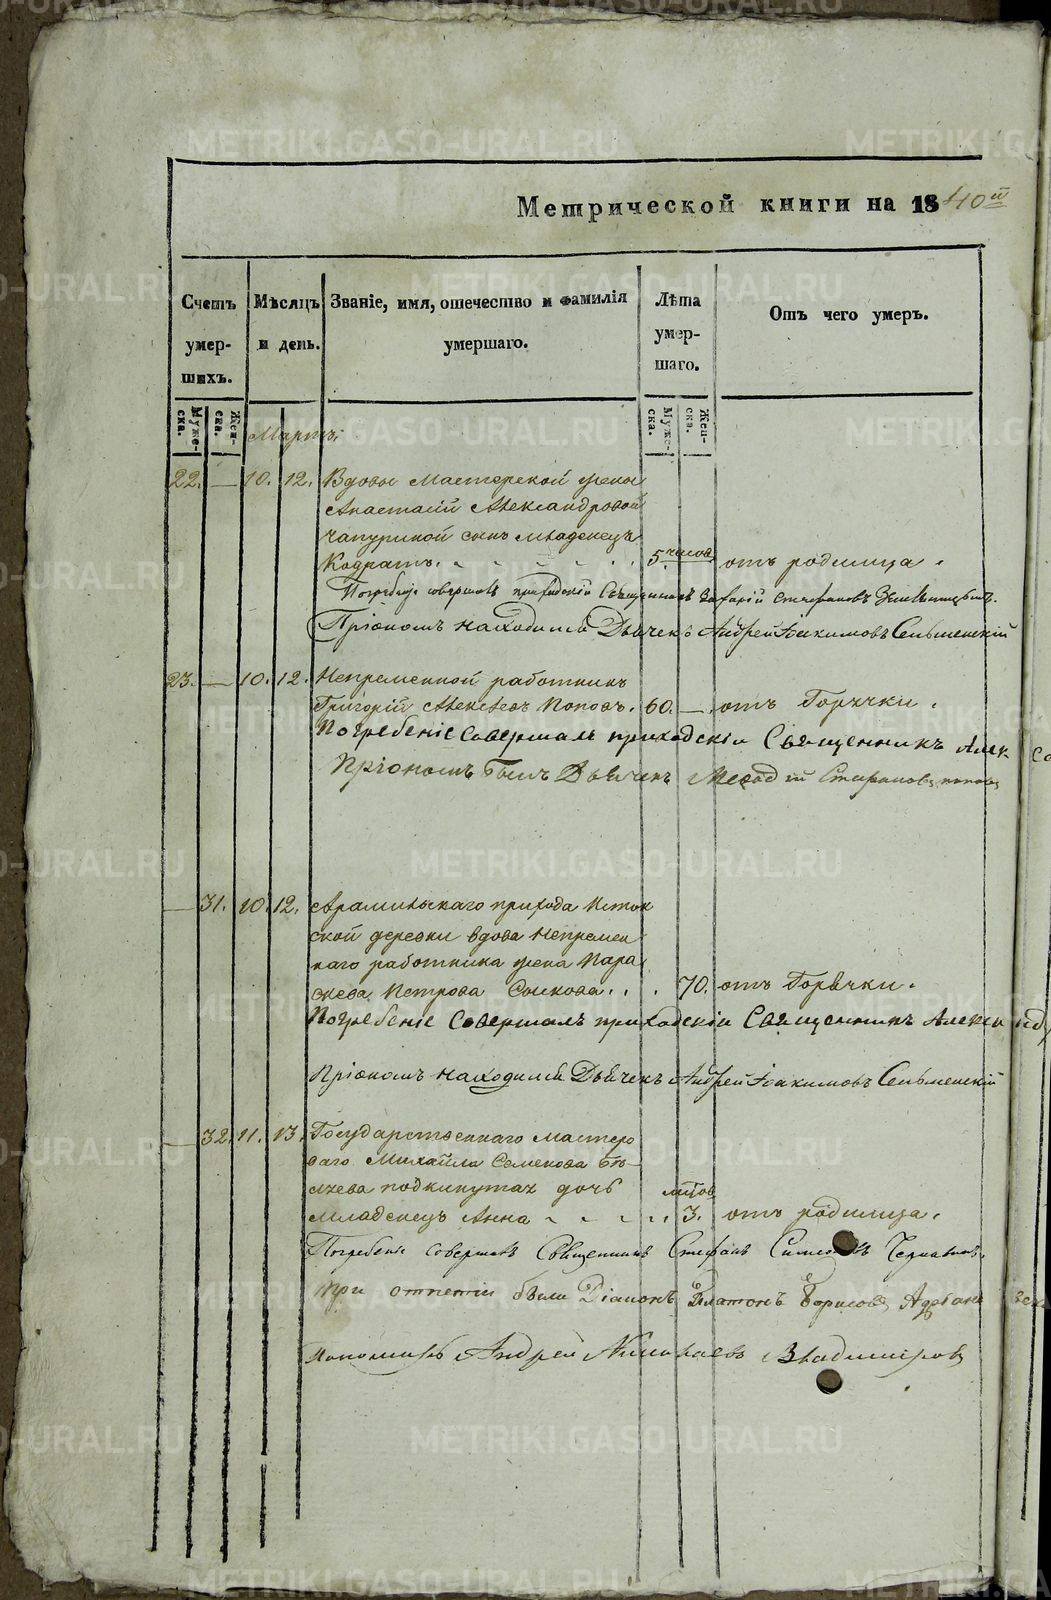 Метрической книги на 1840й
Счетъ умер-шихъ.
Мѣсяцъ и день.
Званіе, имя, отечество и фамилія умершаго.
Лѣта умер-шаго.
Отъ чего умеръ.
Муже-ска.
Жен-ска.
Муже-ска.
Жен-ска.
Мартъ.
22. — 10. 12. Вдовы мастерской жены
Анастасіи Александровой
сынъ младенецъ
Кодратъ. 5 часов отъ родимца.
Погребеніе совершалъ приходскій Священникъ Захарій Стефановъ
Пріономъ находился Дьячекъ Андрей Іоакимовъ Сельменскій
23. — 10. 12. Непременной работникъ
Григорій Алексѣевъ Поповъ. 60. — отъ Горячки.
Погребеніе Совершалъ приходскіи Священникъ Алек
Пріономъ былъ Дьячекъ Меѳодій Стефановъ поповъ
— 31. 10. 12. Арамильскаго прихода Исток
ской деревни вдова Непремен
наго работника жена Пара
скева Петрова Сыскова. 70. отъ Горѣчки.
Погребеніе Совершалъ приходскіи Священникъ Александ
Пріономъ находился Дьячекъ Андрей Іоакимовъ Сельменскій
— 32. 11. 13. Государственнаго мастеро
ваго Михайла Семенова Бѣ-
ляева подкинутая дочь
младенецъ Анна лѣтов 3. отъ родимца.
Погребеніе совершалъ Священникъ Стефанъ
При отпетіи были Діаконъ Платонъ Борисовъ
Пономарь Андрей Николаевъ Владиміровъ
METRIKI.GASO-URAL.RU